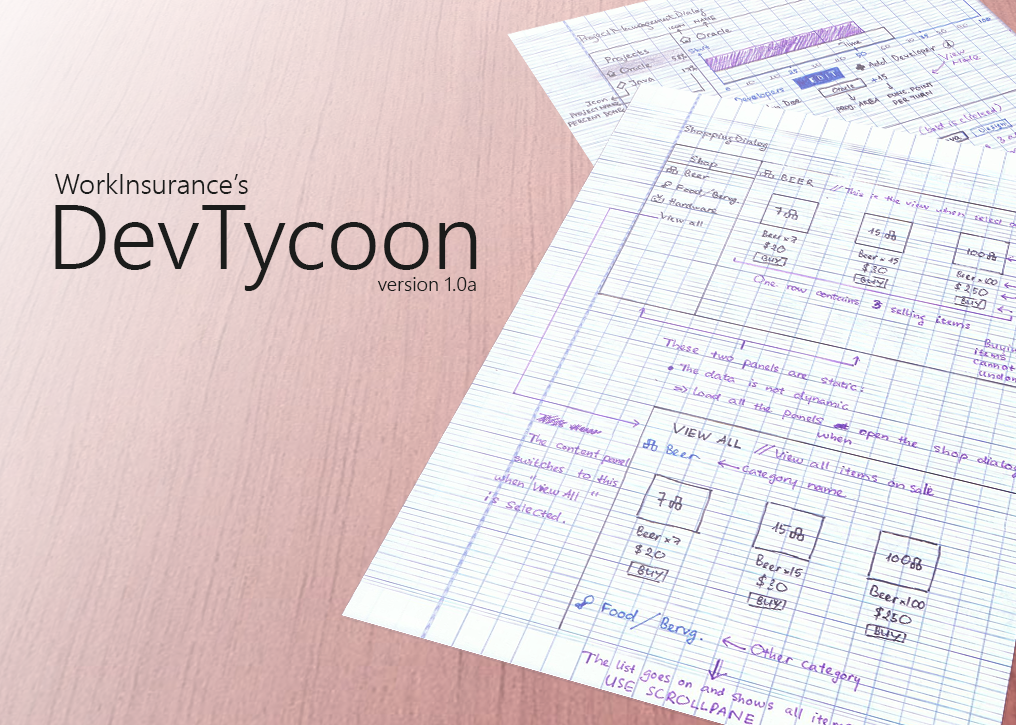 WorkInsurance's
DevTycoon
version 1.0a
Project Management Dialog
ICON NAME
Projects
Oracle
Java
Oracle
Start
Time
Developers
EDIT
Add Developer
VIEW
MORE
Oracle
+15
PROJ. AREA
FUNC. POINT
PER TURN
Icon
PROJECT NAME
PERCENT DONE
Design
ShoppingDialog
Shop
Beer
Food/Bervg.
Hardware
View all
BEER
// This is the view when select
7
15
100
Beer x 7
$20
BUY
Beer x 15
$30
BUY
Beer x 100
$250
BUY
One row contains 3 selling items
Buyin
items
cannot
undon
These two panels are static:
• The data is not dynamic
=> Load all the panels when open the shop dialog
The content panel
switches to this
when "View All"
is selected.
VIEW ALL // View all items on sale
Beer ← category name
7
15
100
Beer x 7
$20
BUY
Beer x 15
$30
BUY
Beer x 100
$250
BUY
Food / Bervg. ← Other category
The list goes on and shows all
USE SCROLLPANE